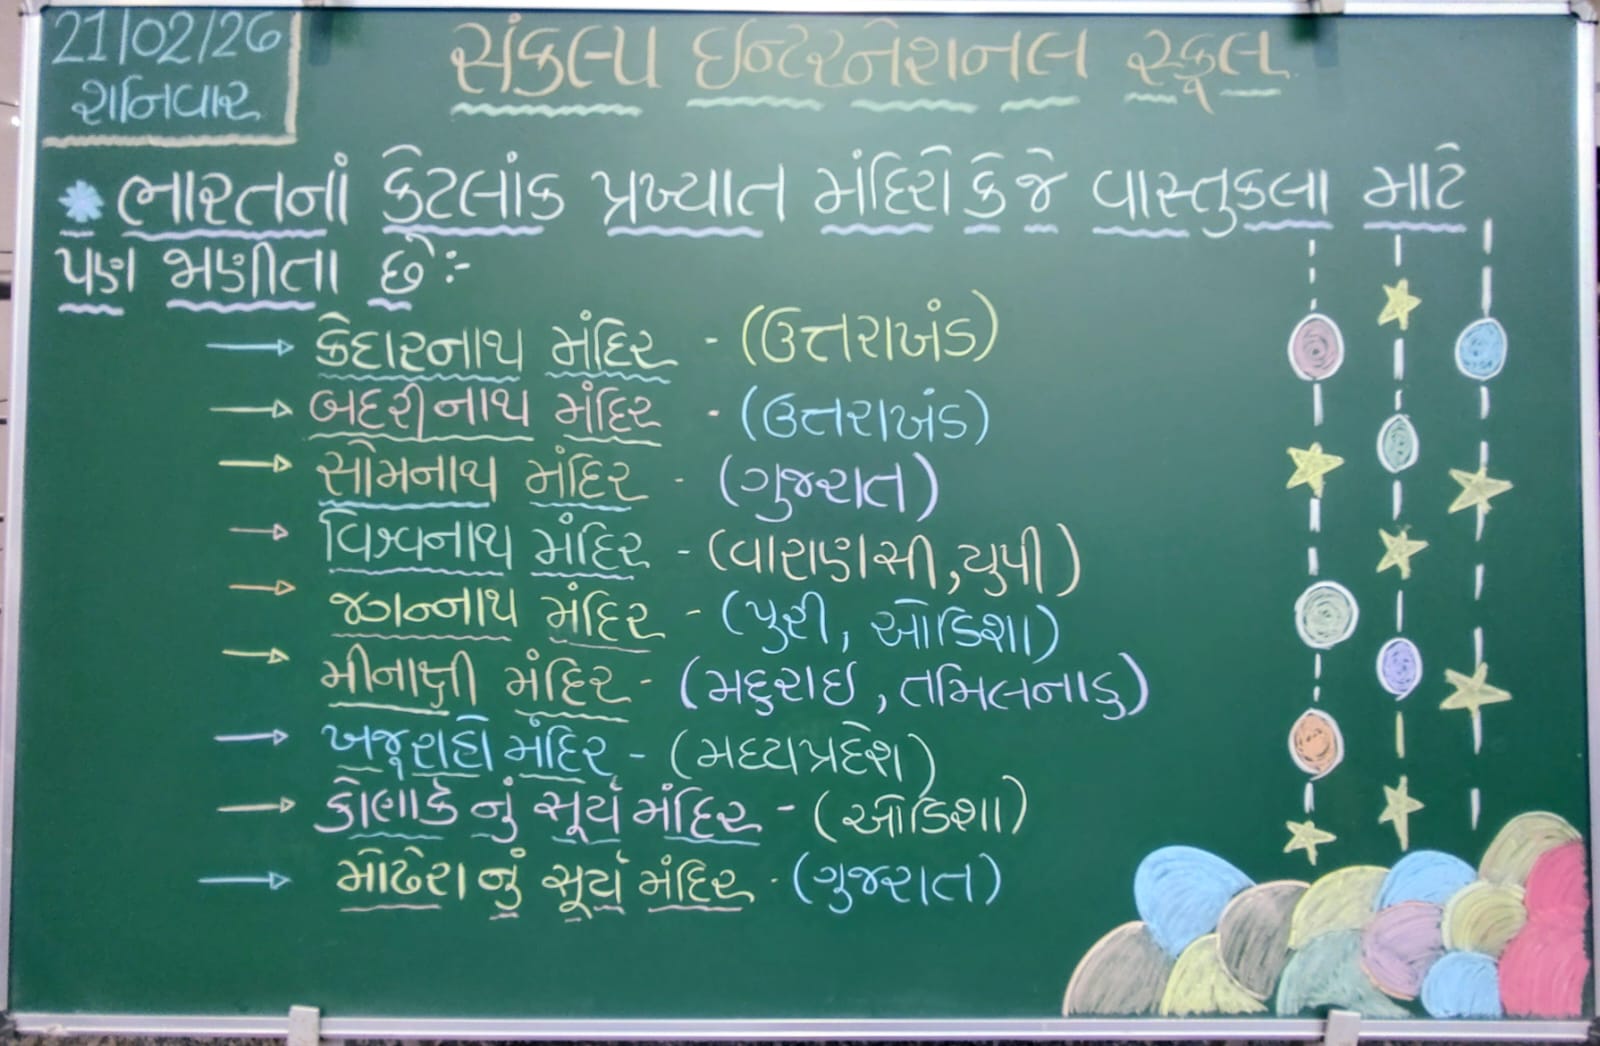 21/02/26
શનિવાર
સંકલ્પ ઇન્ટરનેશનલ સ્કૂલ
* ભારતનાં કેટલાંક પ્રખ્યાત મંદિરો કે જે વાસ્તુકલા માટે
પણ ભણીતા છે:-
→ કેદારનાથ મંદિર - (ઉત્તરાખંડ)
→ બદરીનાથ મંદિર - (ઉત્તરાખંડ)
→ સોમનાથ મંદિર - (ગુજરાત)
→ વિશ્વનાથ મંદિર - (વારાણસી,યુપી)
→ જગન્નાથ મંદિર - (પુરી, ઓડિશા)
→ મીનાક્ષી મંદિર - (મદુરાઇ, તમિલનાડુ)
→ ખજૂરાહો મંદિર - (મધ્યપ્રદેશ)
→ કોણાર્ક નું સૂર્ય મંદિર - (ઓડિશા)
→ મોઢેરા નું સૂર્ય મંદિર - (ગુજરાત)